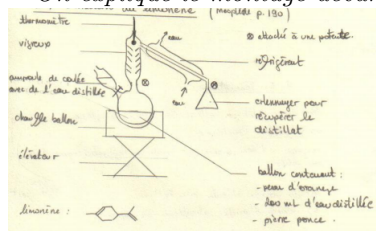 du limonène (Mesplède p.130)
thermomètre
eau
⊗ attaché à une potence
vigreux
réfrigérant
ampoule de coulée
avec de l'eau distillée
eau
erlenmeyer pour
récupérer le
distillat
chauffe ballon
élévateur
ballon contenant :
- peau d'orange
- 200 mL d'eau distillée
- pierre ponce.
limonène :